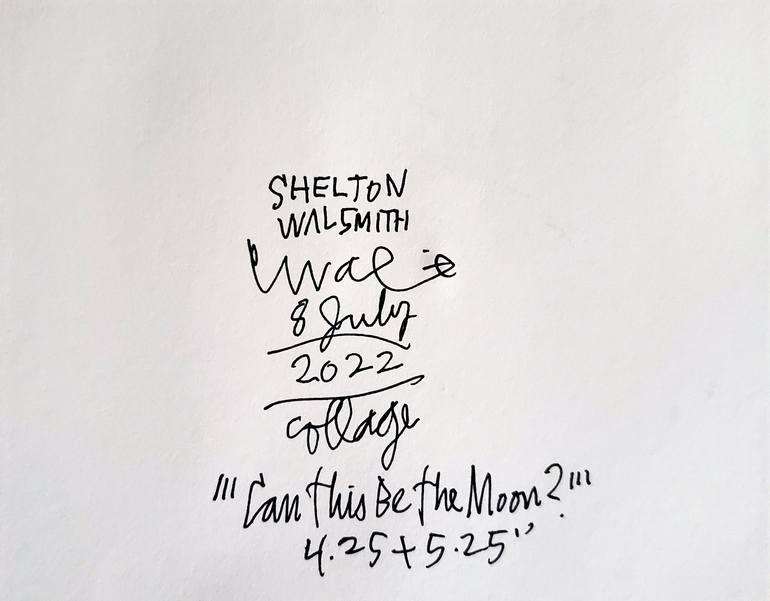 SHELTON
WALSMITH
8 July
2022
collage
"'Can this Be the Moon?"'
4.25+5.25"